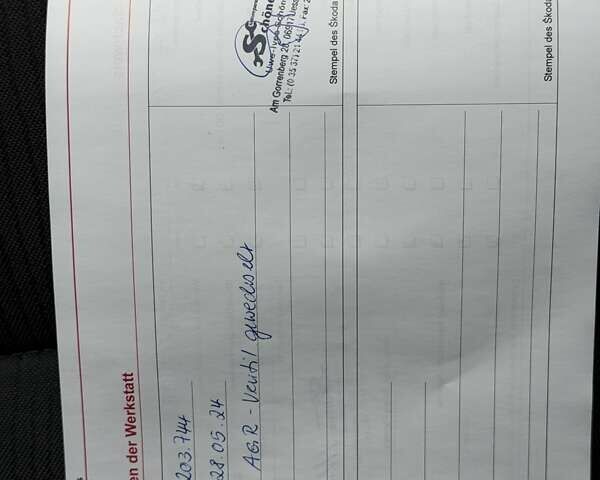 en der Werkstatt
203.744
28.05.24
AGR - Ventil gewechselt
Schöne
Am Gorrenberg 20, 06917 Jess
Tel.: (0 35 37) 21
Stempel des Škoda
Stempel des Škoda